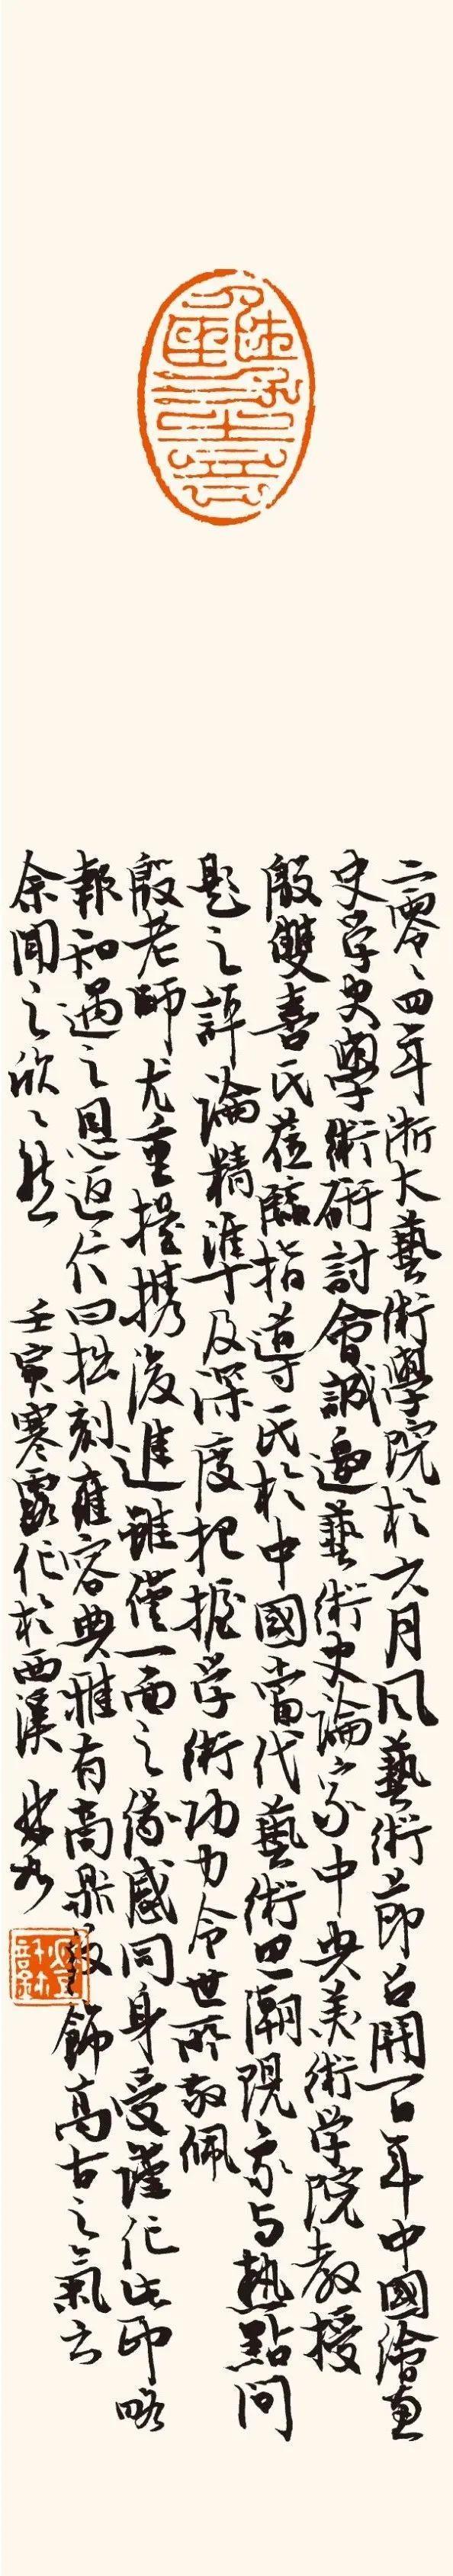 二零零四年浙大藝術學院於六月風藝術節召開百年中國繪畫
史学史學術研討會誠邀藝術史論家中央美術学院教授
殷雙喜氏蒞臨指導氏於中國當代藝術思潮現象与熱點問
題之評論精準及深度把握学術功力令世所敬佩
殷老師尤重擡携後進雖僅一面之缘感同身受謹作此印略
報知遇之恩返仄曰拙刻雍容典雅有商鼎飾高古之氣云
余聞之欣欣然
壬寅寒露作於西溪